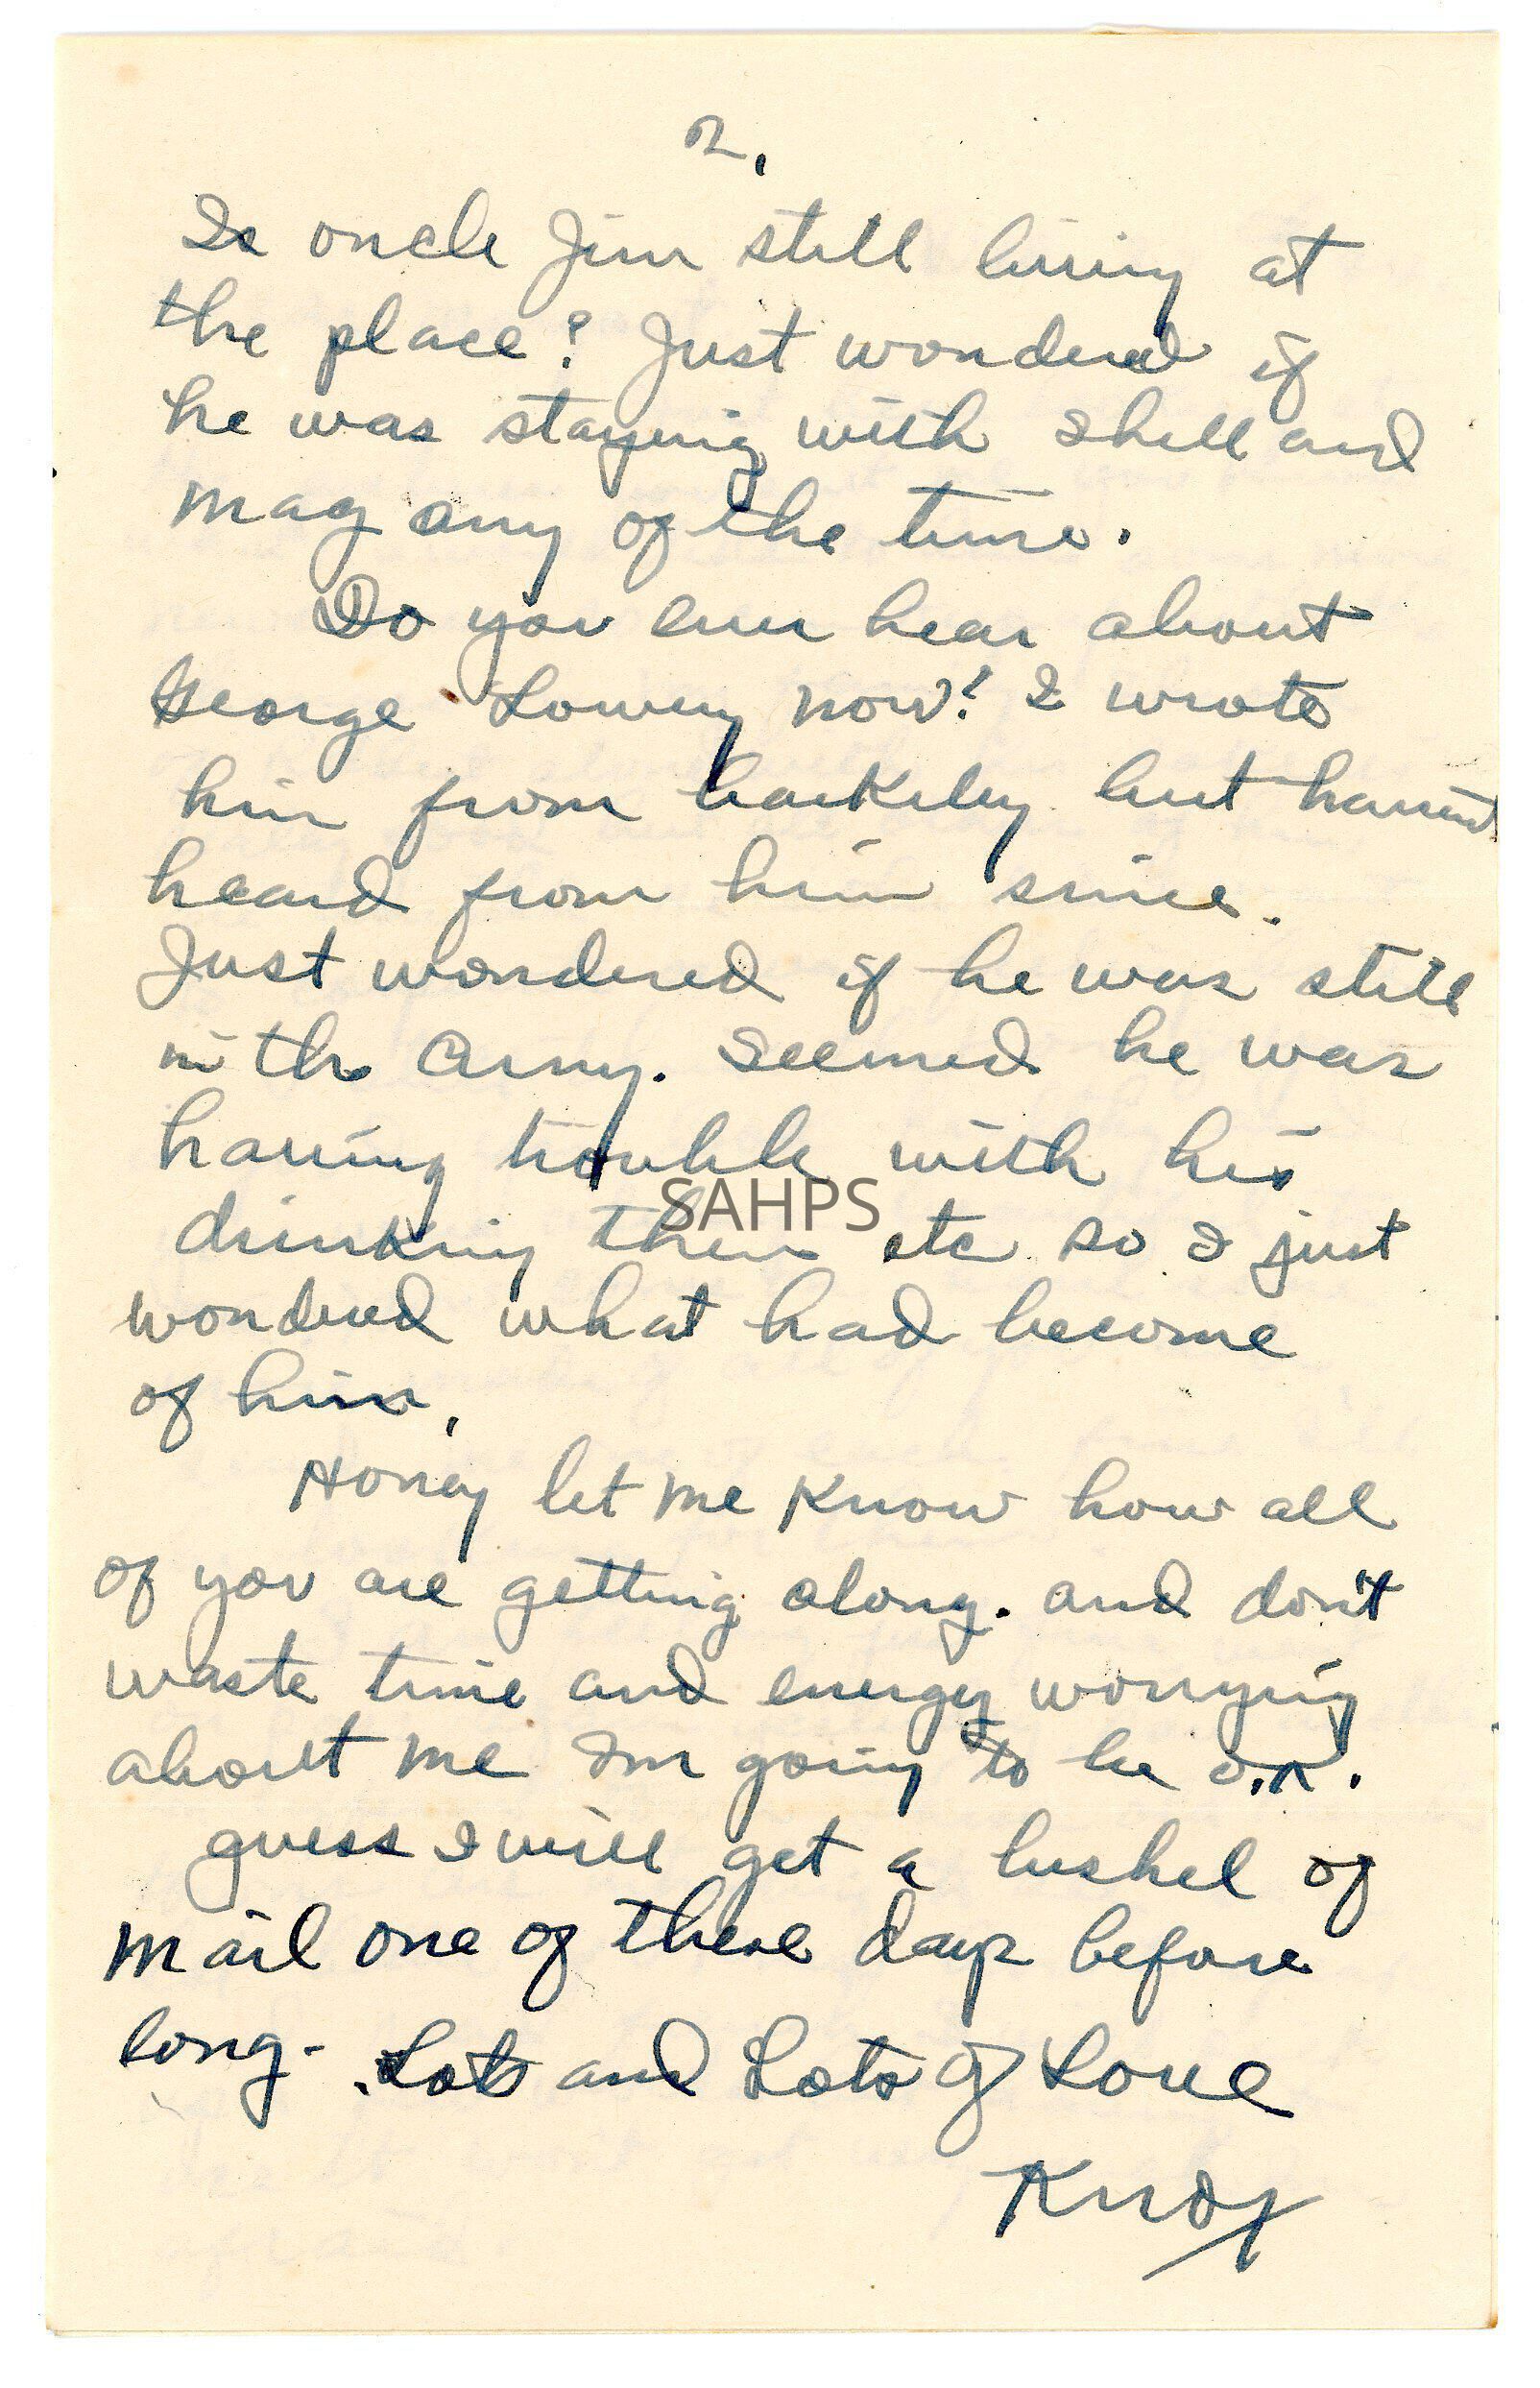 2.
Is oncle Jim still living at
the place? Just wondered if
he was staying with Shell and
Mag any of the time.
Do you ever hear about
George Lowery now? I wrote
him from but havent
heard from him since.
Just wondered if he was still
in the Army. Seemed he was
having trouble with his
SAHPS
drinking then etc so I just
wondered what had become
of him.
Honey let me Know how all
of you are getting along. and don't
waste time and energy worrying
about me Im going to be O.K.
guess I will get a bushel of
mail one of these days before
long. Lots and Lots of Love
Knox